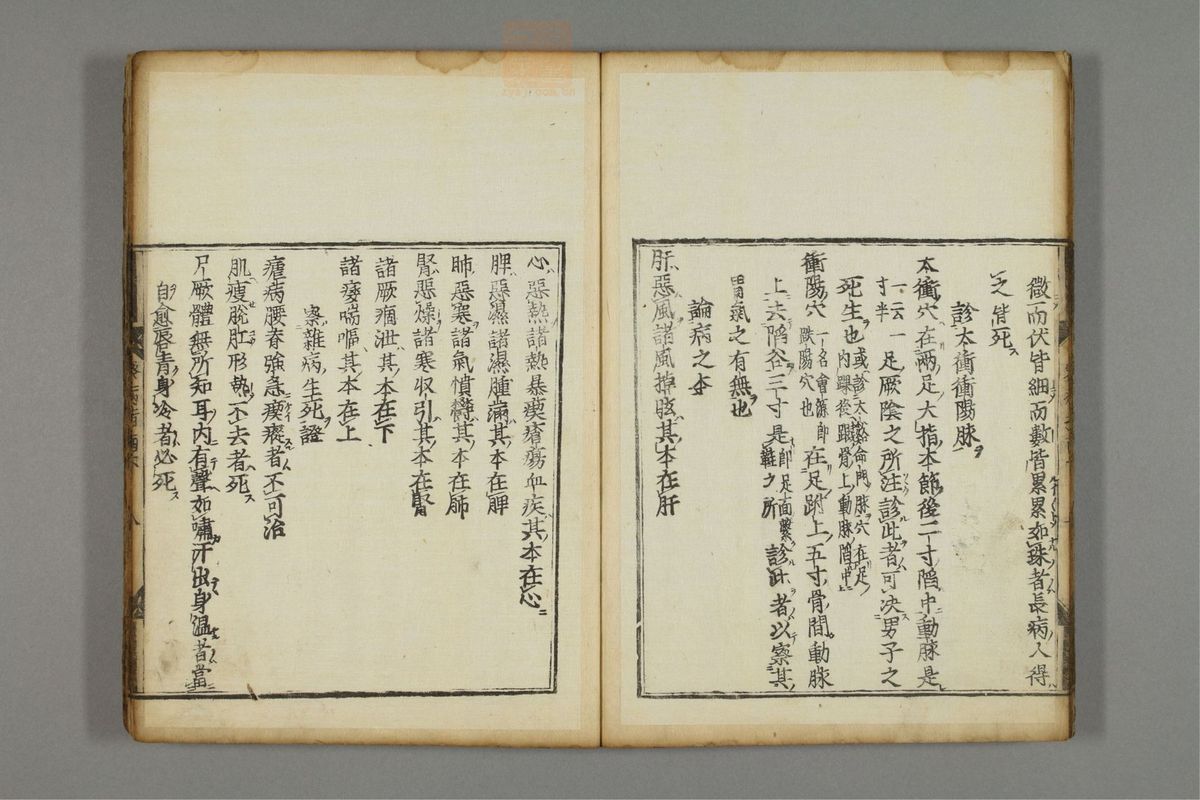 微而伏皆細而數皆累累如珠者長病人得
之皆死
診太衝衝陽脉
太衝穴在兩足大指本節後二寸陷中動脉是
一云一寸半足厥陰之所注診此者可决男子之
死生也或診太谿命門脉穴在足内踝後跟骨上動脉陷中
衝陽穴一名會源即趺陽穴也在足趺上五寸骨間動脉
上去陷谷三寸是即足面繫鞋之所診此者以察其
胃氣之有無也
論病之本
肝惡風諸風掉眩其本在肝
心惡熱諸熱暴瘈瘡瘍血疾其本在心
脾惡濕諸濕腫滿其本在脾
肺惡寒諸氣憤欝其本在肺
腎惡燥諸寒収引其本在腎
諸厥痼泄其本在下
諸痿喘嘔其本在上
察雜病生死證
瘧病腰脊強急瘈瘲者不可治
肌瘦脫肛形熱不去者死
尸厥體無所知耳内有聲如嘯汗出身温者當
自愈唇青身冷者必死